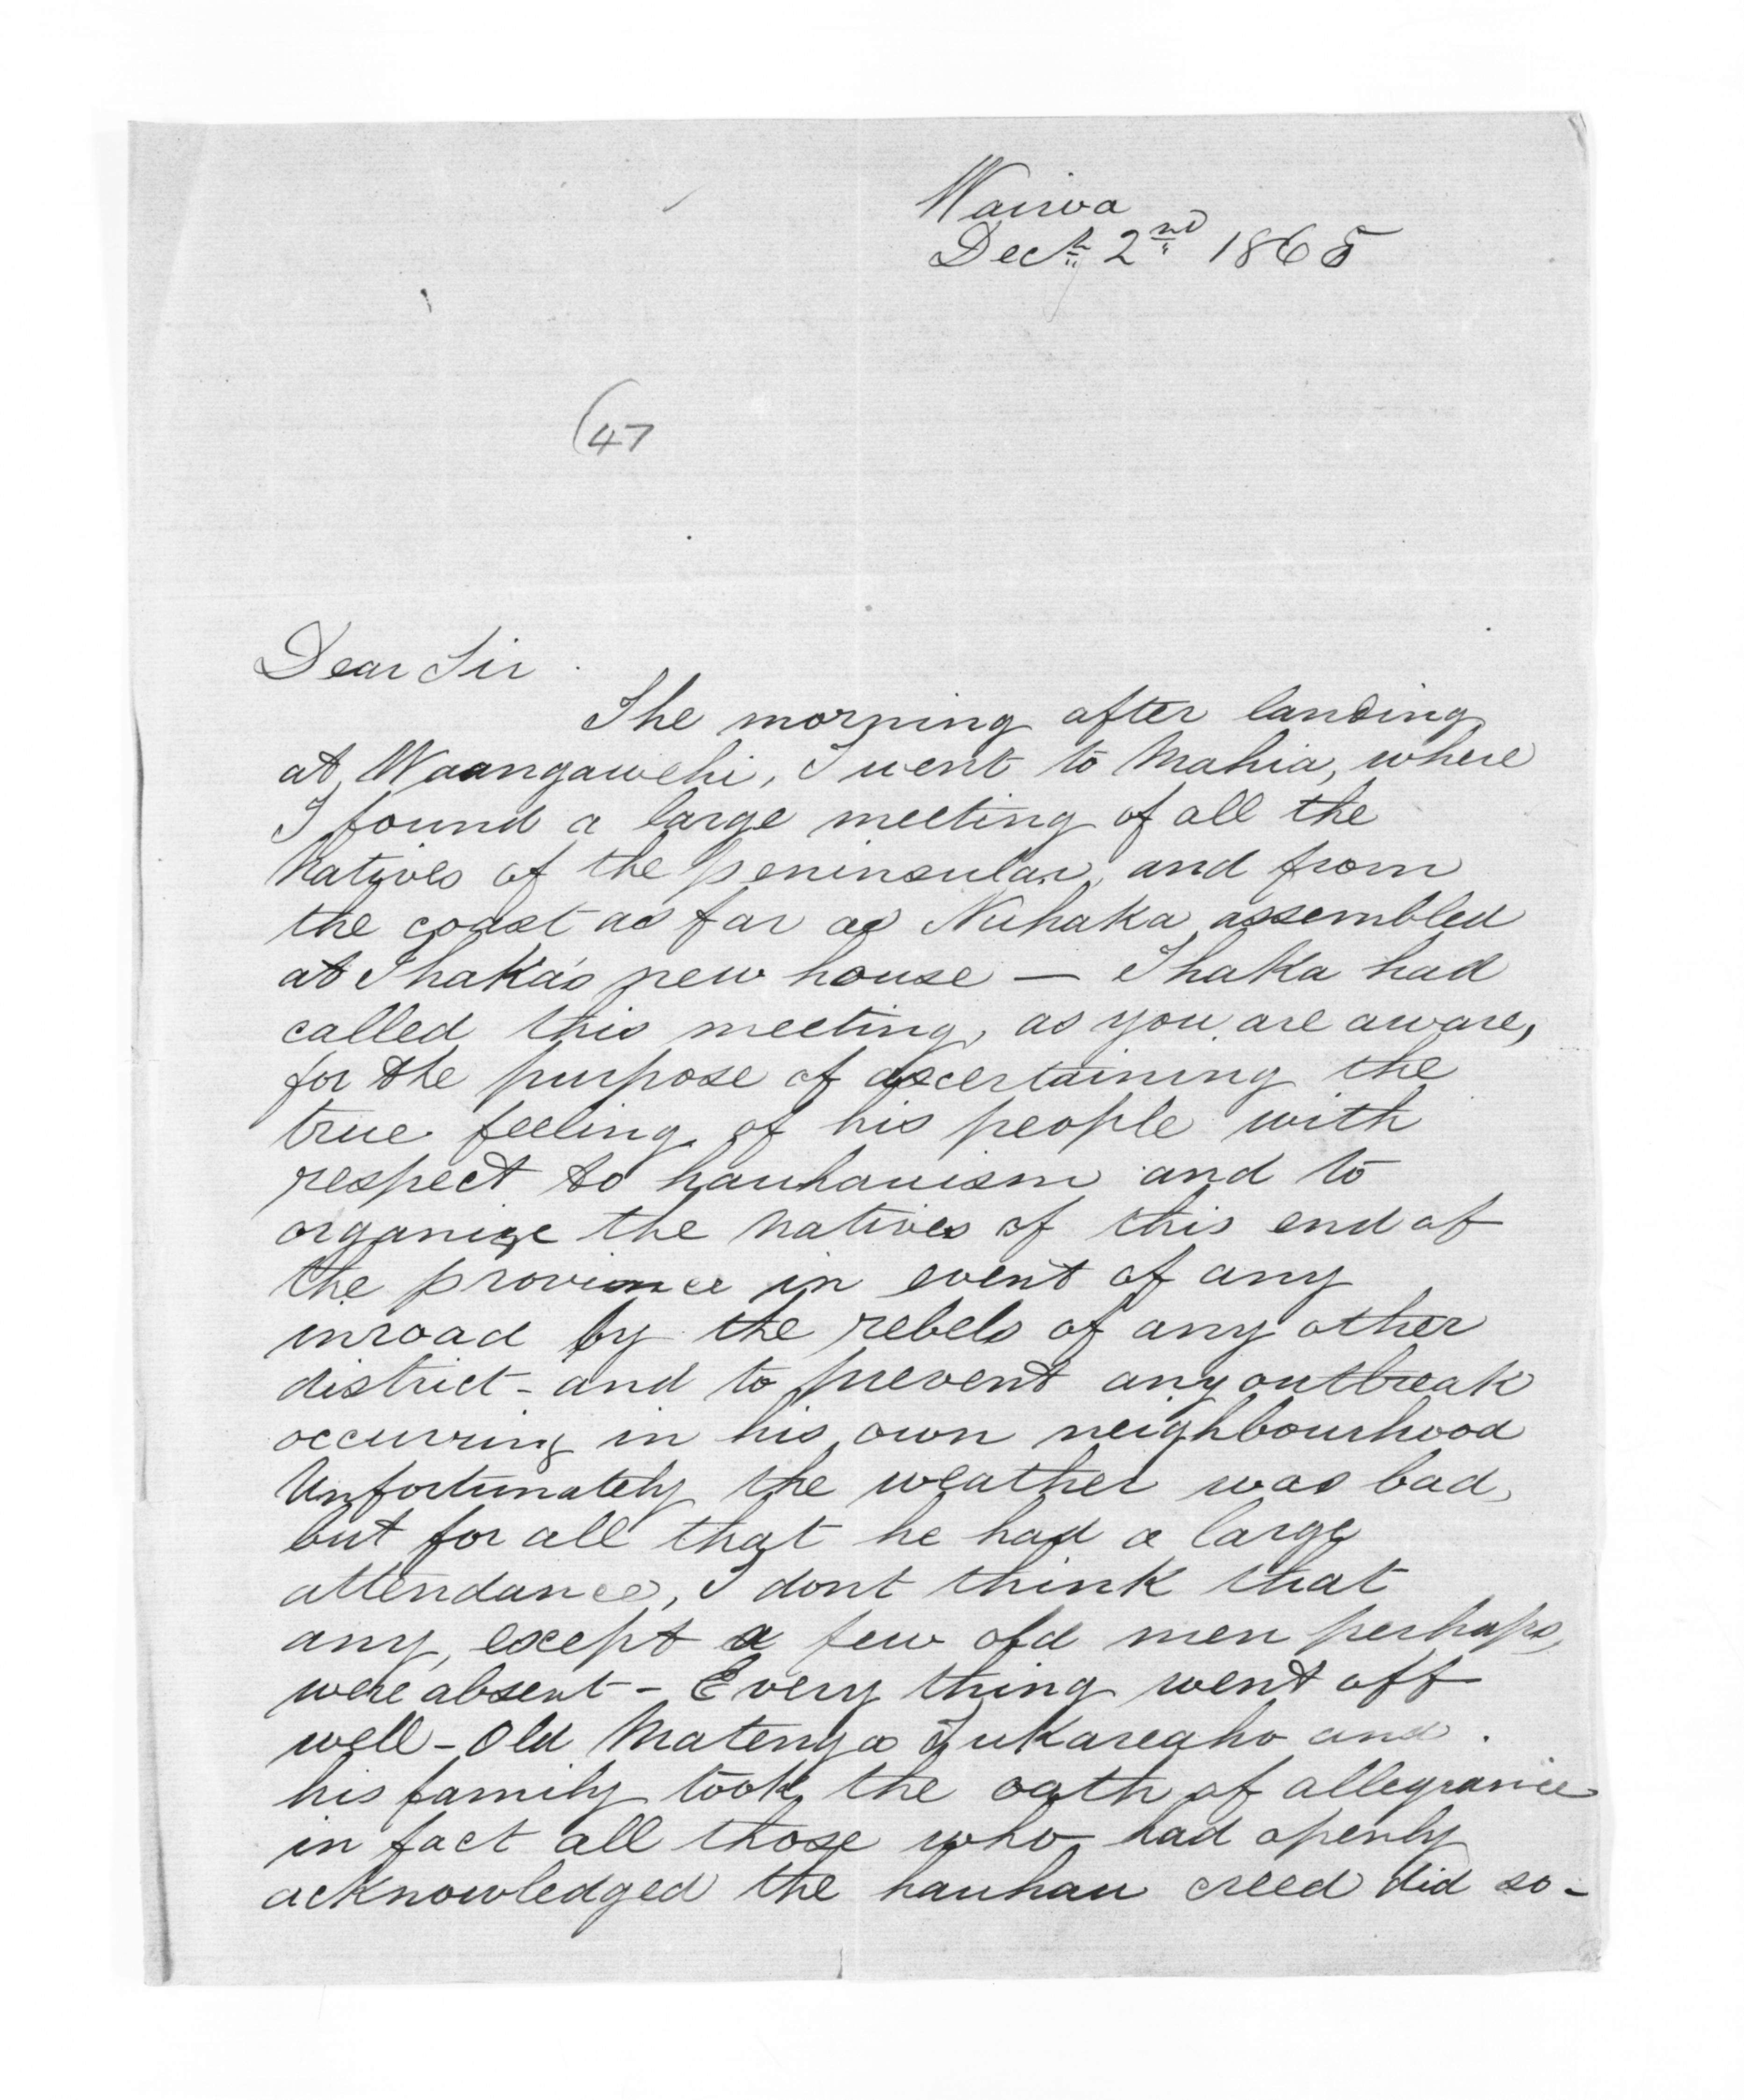 Wairoa
Decr 2nd 1865
(47
Dear Sir
The morning after landing
at Waangawehi, I went to Mahia, where
I found a large meeting of all the
Natives of the peninsular, and from
the coast as far as Nuhaka assembled
at Ihaka's new house — Ihaka had
called this meeting, as you are aware,
for the purpose of ascertaining the
true feeling of his people with
respect to hauhauism and to
organize the natives of this end of
the province in event of any
inroad by the rebels of any other
district - and to prevent any outbreak
occurring in his own neighbourhood
Unfortunately the weather was bad,
but for all that he had a large
attendance, I dont think that
any, except a few old men perhaps,
were absent - Every thing went off
well - Old Matenga Tukareaho and
his family took the oath of allegiance
in fact all those who had openly
acknowledged the hauhau creed did so -